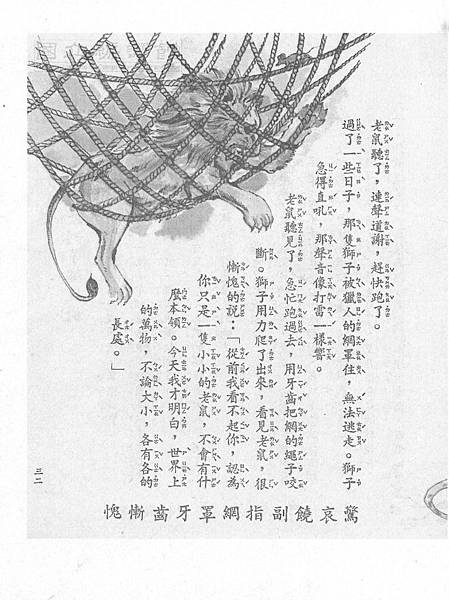 老鼠聽了，連聲道謝，趕快跑了。
過了一些日子，那隻獅子被獵人的網罩住，無法逃走。獅子
急得直吼，那聲音像打雷一樣響。
老鼠聽見了，急忙跑過去，用牙齒把網的繩子咬
斷。獅子用力爬了出來，看見老鼠，很
慚愧的說：「從前我看不起你，認為
你只是一隻小小的老鼠，不會有什
麼本領。今天我才明白，世界上
的萬物，不論大小，各有各的
長處。」
三二
驚哀饒副指網罩牙齒慚愧